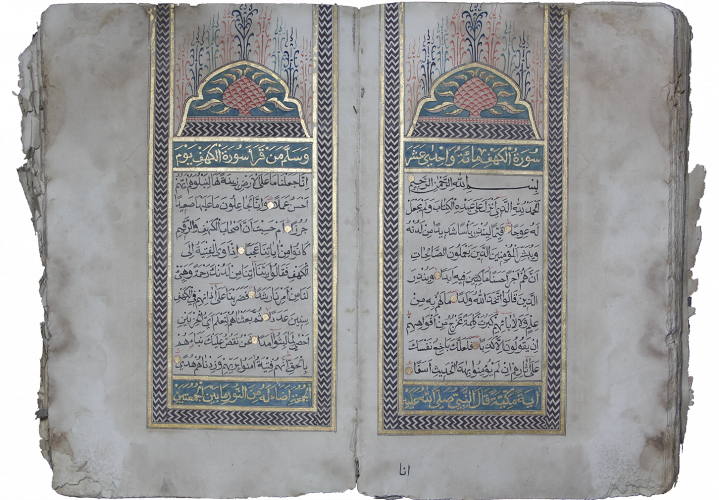 سورة الكهف مائة واحدى عشر
بسم الله الرحمن الرحيم
الحمد لله الذي انزل على عبده الكتاب ولم يجعل
له عوجا قيما لينذر باسا شديدا من لدنه
ويبشر المؤمنين الذين يعملون الصالحات
ان لهم اجرا حسنا ماكثين فيه ابدا وينذر
الذين قالوا اتخذ الله ولدا ما لهم به من
علم ولا لابائهم كبرت كلمة تخرج من افواههم
ان يقولون الا كذبا فلعلك باخع نفسك
على اثارهم ان لم يؤمنوا بهذا الحديث اسفا
آية مكية قال النبي صلى الله عليه
انا
وسلم من قرأ سورة الكهف يوم
انا جعلنا ما على الارض زينة لها لنبلوهم ايهم
احسن عملا وانا لجاعلون ما عليها صعيدا
جرزا ام حسبت ان اصحاب الكهف والرقيم
كانوا من اياتنا عجبا اذ اوى الفتية الى
الكهف فقالوا ربنا اتنا من لدنك رحمة وهيئ
لنا من امرنا رشدا فضربنا على اذانهم في الكهف
سنين عددا ثم بعثناهم لنعلم اي الحزبين
احصى لما لبثوا امدا نحن نقص عليك نباهم
بالحق انهم فتية امنوا بربهم وزدناهم هدى
الجمعة اضاء له من النور ما بين الجمعتين